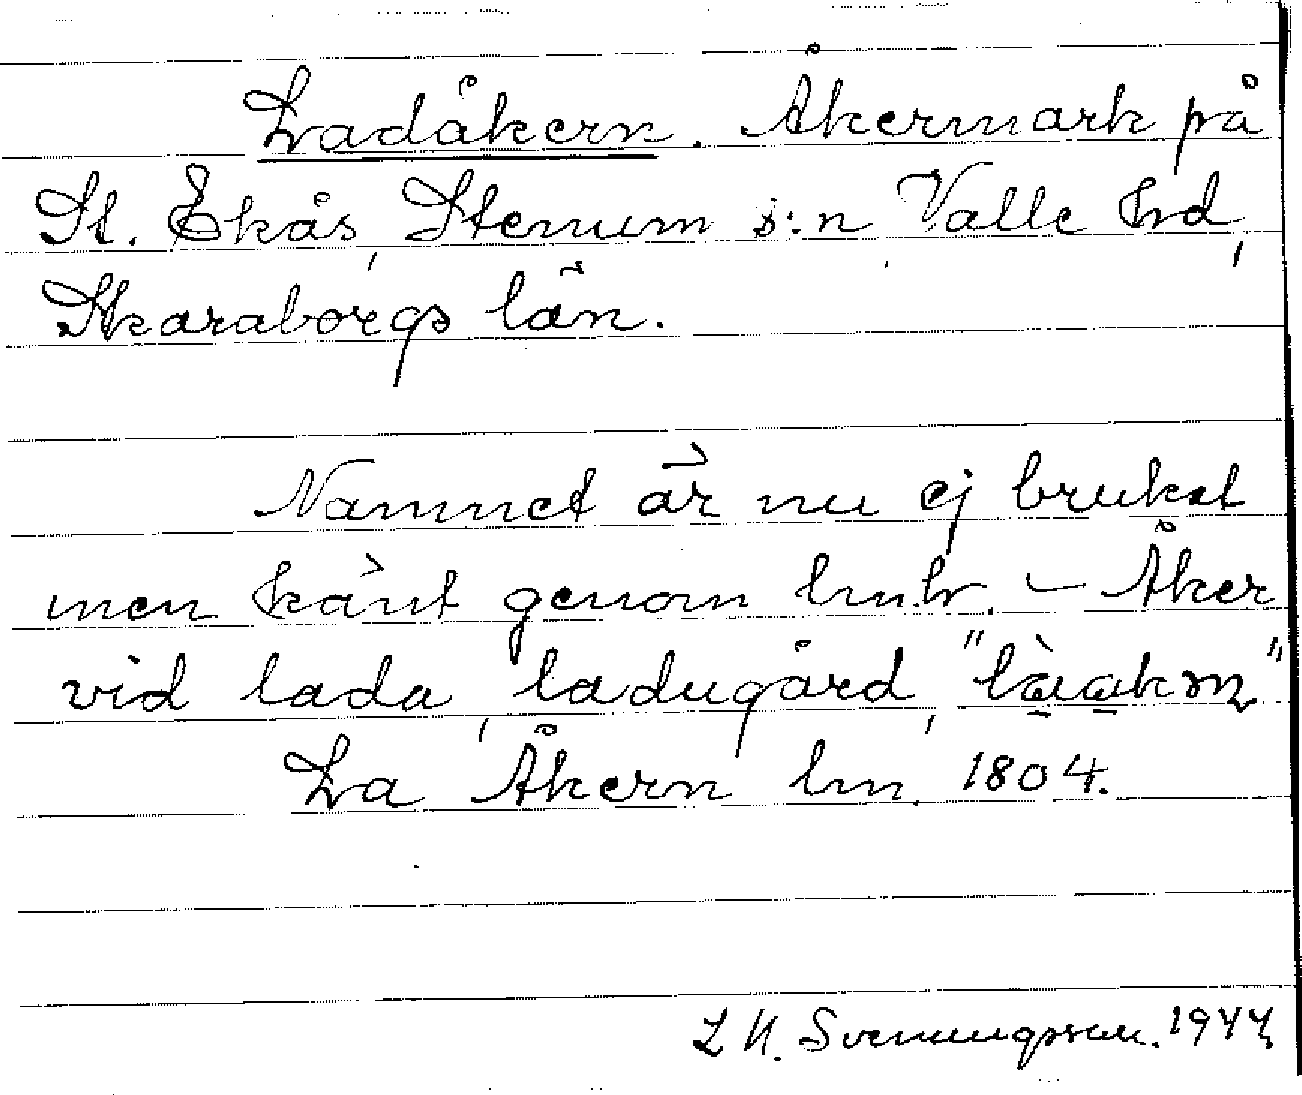 Ladåkern. Åkermark på
St. Ekås, Stenum s:n, Valle hd,
Skaraborgs län.
Namnet är nu ej brukat
men känt genom lm.h. – Åker
vid lada, ladugård,
La Åkern lm. 1804.
L N. Svenungsson. 1944